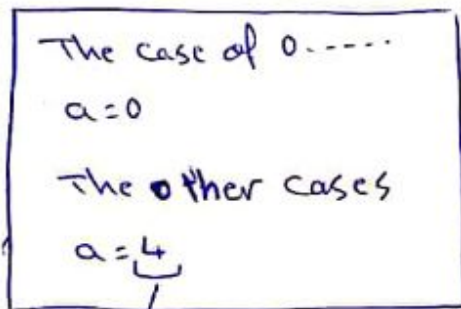 The case of 0.....
a=0
The other cases
a=4